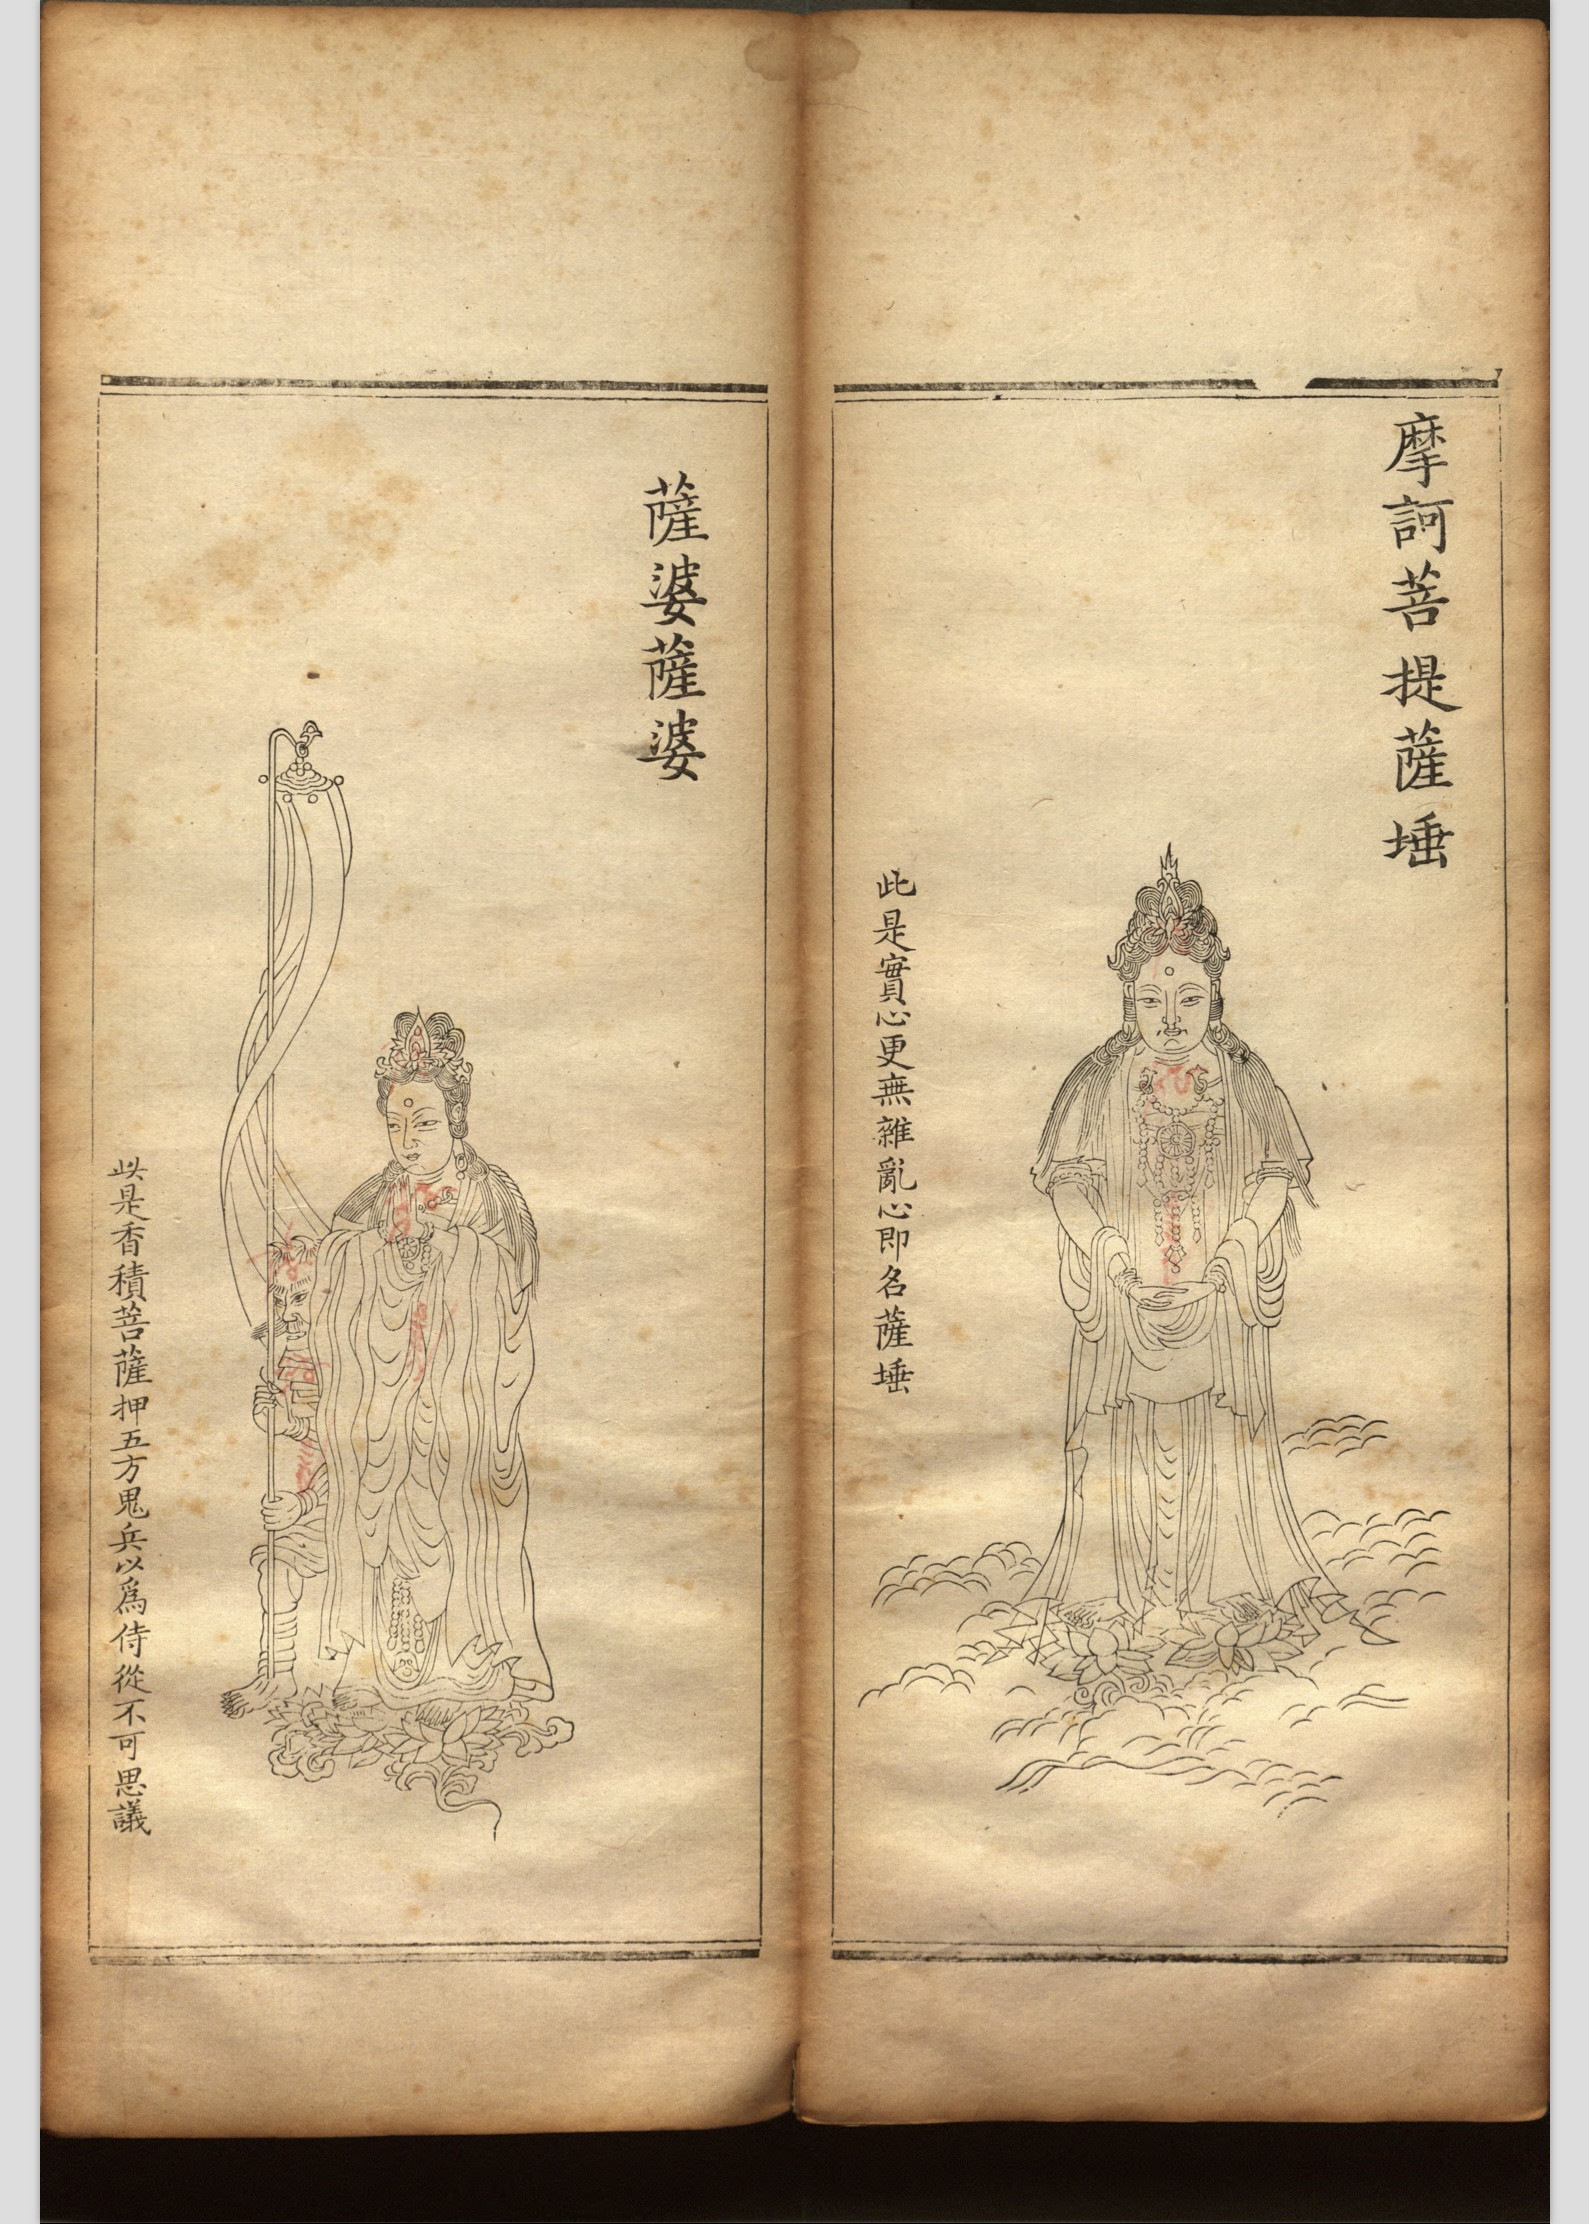 摩訶菩提薩埵
此是實心更無雜亂心即名薩埵
薩婆薩婆
此是香積菩薩押五方鬼兵以爲侍從不可思議